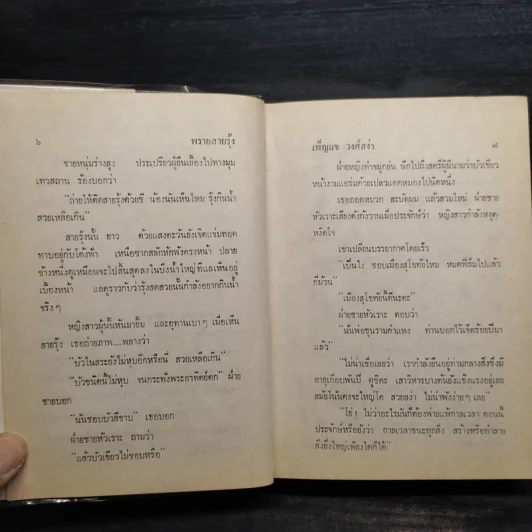 ๖ พรายสายรุ้ง
ชายหนุ่มร่างสูง ประเปรียวผู้ยืนเยื้องไปทางมุม
เทวสถาน ร้องบอกว่า
"ถ่ายให้ติดสายรุ้งด้วยซี น้องนันเห็นไหม รุ้งกินน้ำ
สวยเหลือเกิน"
สายรุ้งนั้น ยาว ด้วยแสงตะวันยังเจิดแจ่มทอด
ทาบอยู่กับโค้งฟ้า เหนือซากสลักหักพังตรงหน้า ปลาย
ข้างหนึ่งดูเหมือนจะไปสิ้นสุดลงในบึงน้ำใหญ่ที่แลเห็นอยู่
เบื้องหน้า แลดูราวกับว่ารุ้งสดสวยนั้นกำลังอยากกินน้ำ
จริงๆ
หญิงสาวผู้นั้นหันมายิ้ม และอุทานเบาๆ เมื่อเห็น
สายรุ้ง เธอถ่ายภาพ....พลางว่า
"บัวในสระยังไม่หุบอีกหรือนี่ สวยเหลือเกิน"
"บัวชนิดนี้ไม่หุบ จนกระทั่งพระอาทิตย์ตก" ฝ่าย
ชายบอก
"นันชอบบัวสีขาบ" เธอบอก
ฝ่ายชายหัวเราะ ถามว่า
"แล้วบัวเขียวไม่ชอบหรือ"
เพ็ญแข วงศ์สง่า ๗
ฝ่ายหญิงทำจมูกย่น นึกไปถึงสตรีผู้มีนามว่าบัวเขียว
หน้างามแอร่มด้วยเปลวแดดหมองไปนิดหนึ่ง
เธอถอยหมวก สะบัดผม แล้วสวมใหม่ ฝ่ายชาย
หัวเราะเสียงดังกังวานเมื่อประจักษ์ว่า หญิงสาวกำลังหงุด-
หงิดใจ
เขาเปลี่ยนบรรยากาศโดยเร็ว
"เป็นไง ชอบเมืองสุโขทัยไหม หมดฟิล์มไปแล้ว
กี่ม้วน"
"เมืองสุโขทัยนี้ดีนะคะ"
ฝ่ายชายหัวเราะ ตอบว่า
"นี่พ่อขุนรามคำแหง ท่านบอกไว้เจ็ดร้อยปีมา
แล้ว"
"ไม่น่าเชื่อเลยว่า เรากำลังยืนอยู่ท่ามกลางสิ่งซึ่งมี
อายุเกือบพันปี ดูซิคะ เสาวิหารบางต้นยังแข็งแรงอยู่เลย
สมัยโน้นคงจะใหญ่โต สวยสง่า ไม่น่าพังง่ายๆ เลย"
"โธ่! ไม่ว่าอะไรมันก็ต้องพ่ายแพ้กาลเวลา ตอนนี้
ประจักษ์หรือยังว่า กาลเวลาชนะทุกสิ่ง สร้างหรือทำลาย
สิ่งยิ่งใหญ่เพียงใดก็ได้"